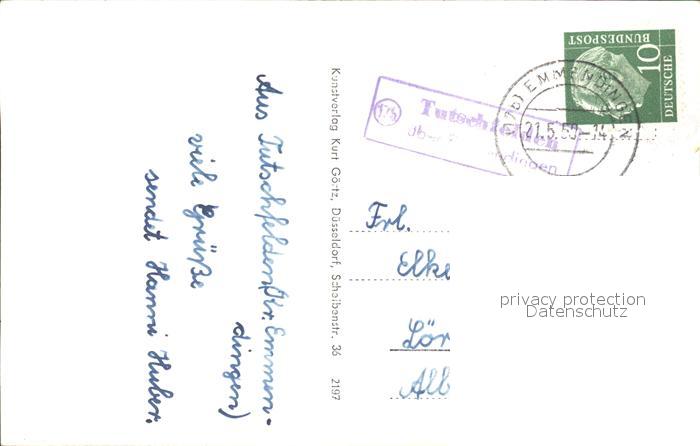 Aus Tutschfelden (Kr. Emmen-
dingen)
viele Grüße
sendet Hanni Huber.
Kunstverlag Kurt Görtz, Düsseldorf, Scheibenstr. 36 2197
17b
Tutschfelden
über
dingen
(17b) EMMENDINGEN
21.5.
DEUTSCHE
BUNDESPOST
10
Frl.
Elke
Lör
All
privacy protection
Datenschutz